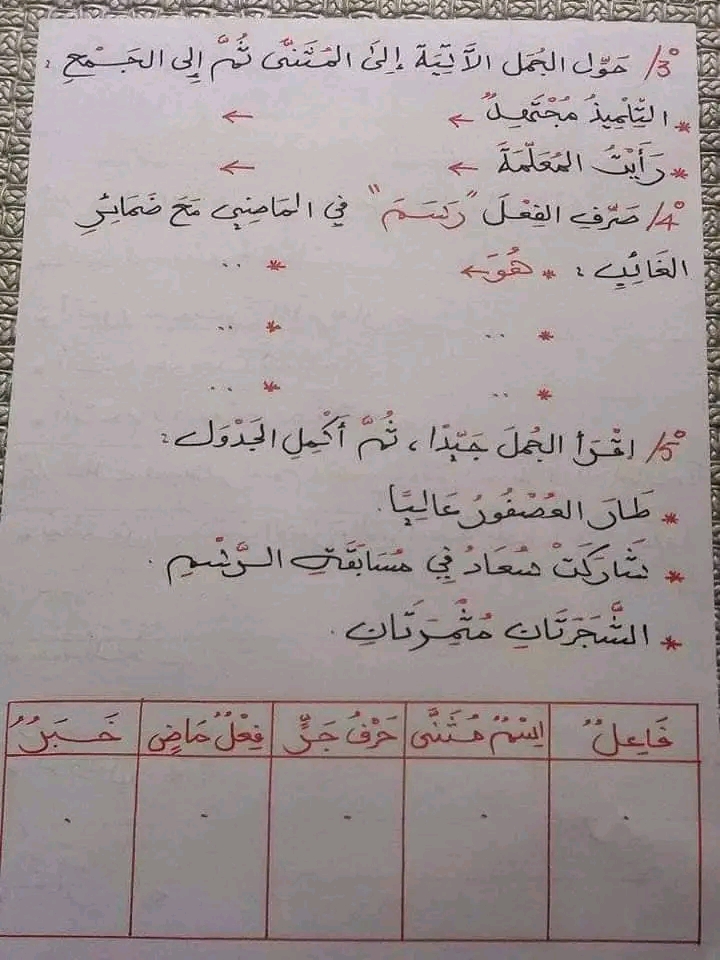 3°/ حَوِّل الجُمَل الآتِيَة إِلَى المُثَنَّى ثُمَّ إِلى الجَمْعِ :
* التِّلْمِيذُ مُجْتَهِدٌ ← ←
* رَأَيْتُ المُعَلِّمَةَ ← ←
4°/ صَرِّفِ الفِعْلَ "رَسَمَ" في المَاضِي مَعَ ضَمَائِرِ
الغَائِبِ : * هُوَ ← * ..
* .. * ..
* .. * ..
5°/ اِقْرَأ الجُمَلَ جَيِّدًا، ثُمَّ أَكْمِلِ الجَدْوَلَ :
* طَارَ العُصْفُورُ عَالِيًا.
* شَارَكَتْ سُعَادُ فِي مُسَابَقَةِ الرَّسْمِ.
* الشَّجَرَتَانِ مُثْمِرَتَانِ.
فَاعِلٌ اِسْمٌ مُثَنَّى حَرْفُ جَرٍّ فِعْلٌ مَاضٍ خَبَرٌ
. . . . .